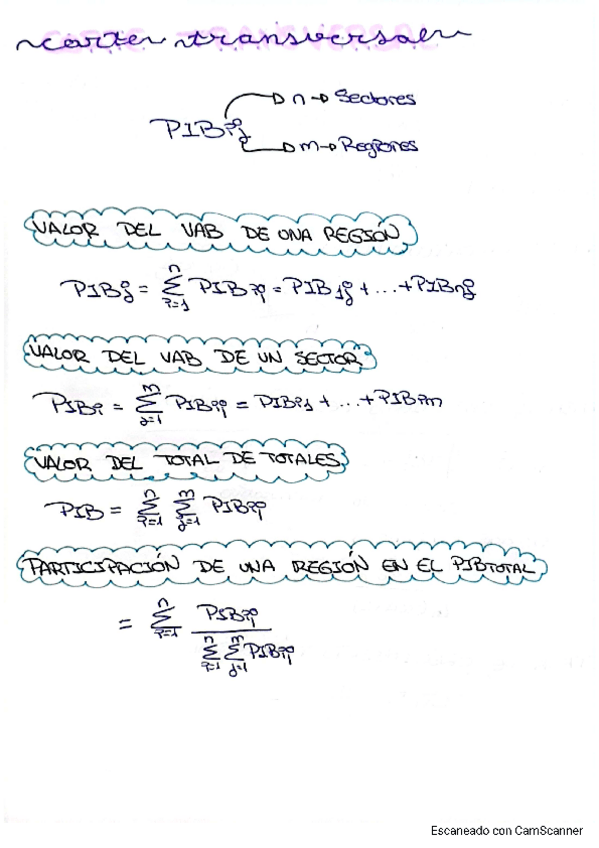 corte transversal
PIBij → n → Sectores
→ m → Regiones
VALOR DEL VAB DE UNA REGIÓN
PIBj = Σ_{i=1}^{n} PIBij = PIB1j + ... + PIBnj
VALOR DEL VAB DE UN SECTOR
PIBi = Σ_{j=1}^{m} PIBij = PIBi1 + ... + PIBim
VALOR DEL TOTAL DE TOTALES
PIB = Σ_{i=1}^{n} Σ_{j=1}^{m} PIBij
PARTICIPACIÓN DE UNA REGIÓN EN EL PIBTOTAL
= Σ_{i=1}^{n} PIBij / Σ_{i=1}^{n} Σ_{j=1}^{m} PIBij
Escaneado con CamScanner